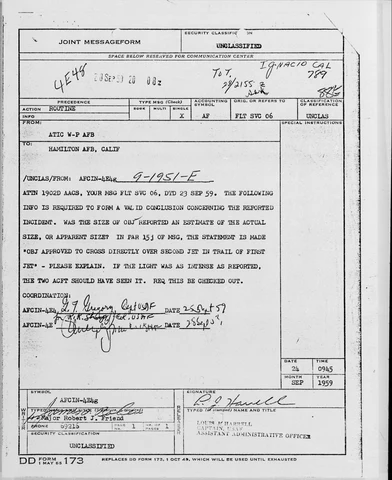 JOINT MESSAGEFORM
SECURITY CLASSIFICATION
UNCLASSIFIED
SPACE BELOW RESERVED FOR COMMUNICATION CENTER
4E48
IGNACIO CAL
789
TOT
28/2155 Z
PRECEDENCE
TYPE MSG (Check)
ACCOUNTING SYMBOL
ORIG. OR REFERS TO
CLASSIFICATION OF REFERENCE
ACTION ROUTINE
BOOK MULTI SINGLE
INFO
X
AF
FLT SVC 06
UNCLAS
FROM:
SPECIAL INSTRUCTIONS
ATIC W-P AFB
TO:
HAMILTON AFB, CALIF
/UNCLAS/FROM: AFCIN-4E4 9-1951-E
ATTN 1902D AACS, YOUR MSG FLT SVC 06, DTD 23 SEP 59. THE FOLLOWING
INFO IS REQUIRED TO FORM A VALID CONCLUSION CONCERNING THE REPORTED
INCIDENT. WAS THE SIZE OF OBJ REPORTED AN ESTIMATE OF THE ACTUAL
SIZE, OR APPARENT SIZE? IN PAR 15j OF MSG, THE STATEMENT IS MADE
"OBJ APPROVED TO CROSS DIRECTLY OVER SECOND JET IN TRAIL OF FIRST
JET" - PLEASE EXPLAIN. IF THE LIGHT WAS AS INTENSE AS REPORTED,
THE TWO ACFT SHOULD HAVE SEEN IT. REQ THIS BE CHECKED OUT.
COORDINATION:
AFCIN-4E4 DATE 25 Sept 59
AFCIN-4E DATE
DATE TIME
24 0945
MONTH YEAR
SEP 1959
SYMBOL
AFCIN-4E4
SIGNATURE
Major Robert J. Friend
TYPED NAME AND TITLE
PHONE 69216 PAGE 1 OF 1
CAPTAIN, USAF
ASSISTANT ADMINISTRATIVE OFFICER
SECURITY CLASSIFICATION
UNCLASSIFIED
DD FORM 1 MAY 55 173 REPLACES DD FORM 173, 1 OCT 49, WHICH WILL BE USED UNTIL EXHAUSTED